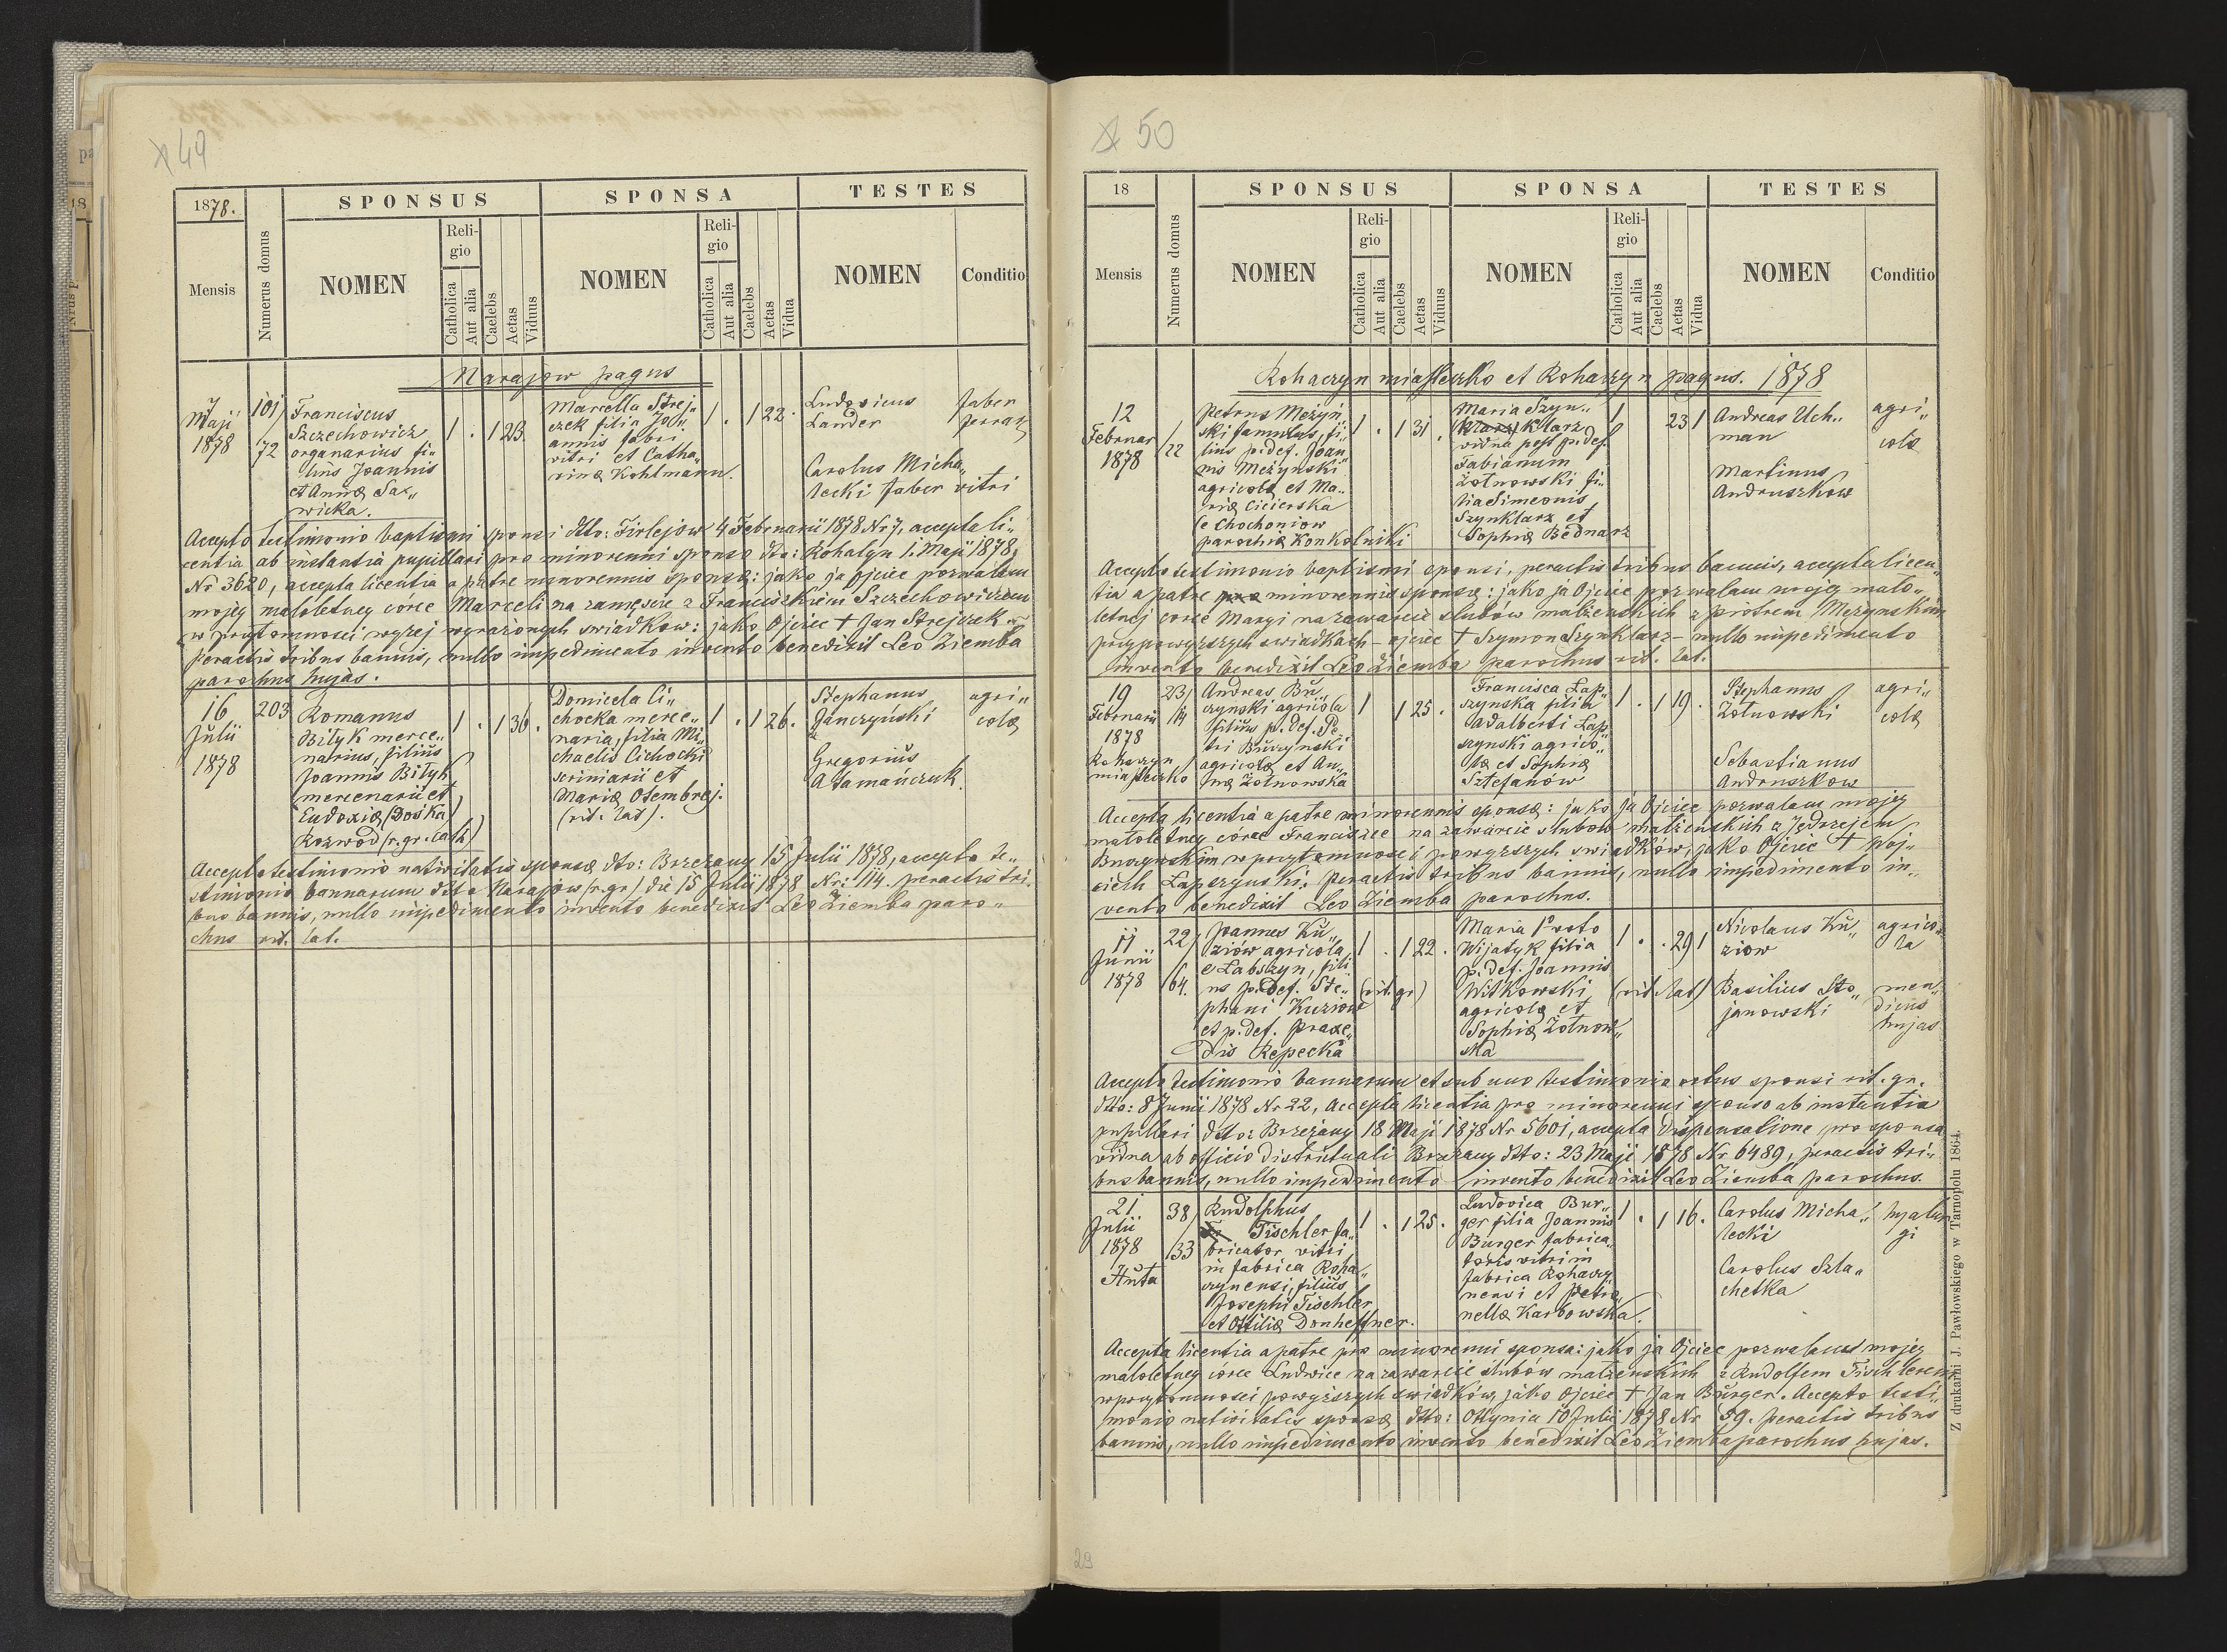 49
1878.
Mensis
Numerus domus
SPONSUS
NOMEN
Religio
Catholica
Aut alia
Caelebs
Aetas
Viduus
SPONSA
NOMEN
Religio
Catholica
Aut alia
Caelebs
Aetas
Vidua
TESTES
NOMEN
Conditio
Narajow pagus
7 Maji 1878
101/72
Franciscus
Szczechowicz
organarius fi„
lius Joannis
et Annæ Sa„
wicka.
1 . 1 23.
Marcella Strej„
czek filia Jo„
annis fabri
vitri et Catha„
rinæ Kohlmann.
1 . 1 22.
Ludovicus
Lander
faber
Carolus Micha„
lecki faber vitri
Accepto testimonio baptismi sponsi dtto: Firlejow 4 Februarii 1878 Nr 7, accepta li„
centia ab instantia pupillari pro minorenni sponso dto: Rohatyn 1. Maji 1878,
Nr 3620, accepta licentia a patre minorennis sponsæ: jako ja Ojciec pozwalam
mojej małoletniej córce Marceli na zamęście z Franciszkiem Szczechowiczem
w przytomności wyżej wyrażonych swiadkow: jako Ojciec + Jan Strejczek
Peractis tribus bannis, nullo impedimento invento benedixit Leo Ziemba
parochus hujas.
16
Julii
1878
203
Romanus
Bityk merce„
narius, filius
Joannis Bityk
mercenarii et
Eudoxiæ (Doska)
Rozwod (r. gr. cath)
1 . 1 36.
Domicela Ci„
chocka merce„
naria, filia Mi„
chaelis Cichocki
scriniarii et
Mariæ Otembrej.
(rit. lat).
1 . 1 26.
Stephanus
Janczyński
agri„
colæ
Gregorius
Atamańczuk
Accepto testimonio nativitatis sponsæ dto: Brzeżany 15 Julii 1878, accepto te„
stimonio bannorum dto Narajow (r. gr) die 15 Julii 1878 Nr: 114. peractis tri„
bus bannis, nullo impedimento invento benedixit Leo Ziemba paro„
chus rit. lat.
50
18
Mensis
Numerus domus
SPONSUS
NOMEN
Religio
Catholica
Aut alia
Caelebs
Aetas
Viduus
SPONSA
NOMEN
Religio
Catholica
Aut alia
Caelebs
Aetas
Vidua
TESTES
NOMEN
Conditio
Rohaczyn miasteczko et Rohaczyn pagus. 1878
12
Februar
1878
/22
Petrus Mezyń„
ski famulus, fi„
lius p. def. Joan„
nis Mezynski
agricolæ et Ma„
riæ Cicierska
e Chochoniow
parochiæ Konkolniki
1 . 1 31 .
Maria Szyn„
klarz
vidua post p. def.
Fabianum
Żotnowski fi„
lia Simeonis
Szynklarz et
Sophiæ Bednarz
1 23 1
Andreas Uch„
man
agri„
colæ
Martinus
Andruszkow
Accepto testimonio baptismi sponsi, peractis tribus bannis, accepta licen„
tia a patre minorennis sponsæ: jako ja Ojciec pozwalam mojej mało„
letniej corce Maryi na zawarcie slubów małżenskich z Piotrem Mezynskim
przy powyższych swiadkach – ojciec + Szymon Szynklarz – nullo impedimento
invento benedixit Leo Ziemba parochus rit. lat.
19
Februarii
1878
Rohaczyn
miasteczko
23/14
Andreas Bu„
rzynski agricola
filius p. def. Pe„
tri Burzynski
agricolæ et An„
næ Żołnowska
1 1 25 .
Francisca Łap„
szynska filia
Adalberti Łap„
szynski agrico„
læ et Sophiæ
Sztefanow
1 . 1 19 .
Stephanus
Żołnowski
agri„
colæ
Sebastianus
Andruszkow
Accepta licentia a patre minorennis sponsæ: jako ja Ojciec pozwalam mojej
małoletniej córce Franciszce na zawarcie slubow małżenskich z Jędrzejem
Burzynskim w przytomnosci powyższych swiadków, jako Ojciec + Woj„
ciech Łapszynski. Peractis tribus bannis, nullo impedimento in„
vento benedixit Leo Ziemba parochus.
11
Junii
1878
22/64.
Joannes Ku„
ziów agricola
e Labszyn, fili„
us p. def. Ste„
phani Kuziow
et p. def. Praxe„
dis Repecka
1 . 1 22 .
(rit. gr)
Maria 1º voto
Wijatyk filia
p. def. Joannis
Witkowski
agricolæ et
Sophiæ Żołnow„
ska
1 . . 29 1
(rit. lat)
Nicolaus Ku„
ziow
agrico„
la
Basilius Sto„
janowski
men„
dicus
hujas
Accepto testimonio bannorum et sub uno testimonio ortus sponsi rit. gr.
dtto: 8 Junii 1878 Nr 22, Accepta licentia pro minorenni sponso ab instantia
pupillari dtto: Brzeżany 18 Maji 1878 Nr 5601, accepta dispensatione pro sponsa
vidua ab officio districtuali Brzeżany dtto: 23 Maji 1878 Nr 6489, peractis tri„
bus bannis, nullo impedimento invento benedixit Leo Ziemba parochus.
21.
Julii
1878
Huta
38/33
Rudolphus
Tischler fa„
bricator vitri
in fabrica Roha„
czynensi, filius
Josephi Tischler
et Ottiliæ Donheffner.
1 . 1 25 .
Ludovica Bur„
ger filia Joannis
Burger fabrica„
toris vitri in
fabrica Rohaczy„
nensi et Petro„
nellæ Karbowska.
1 . 1 16 .
Carolus Micha„
lecki
hyalur„
gi
Carolus Szla„
chetka
Accepta licentia a patre pro minorenni sponsa: jako ja Ojciec pozwalam mojej
małoletniej córce Ludwice na zawarcie slubów małżenskich z Rudolfem Tischlerem
w przytomnosci powyższych swiadków, jako Ojciec + Jan Burger. Accepto testi„
monio nativitatis sponsæ dtto: Ottynia 10 Julii 1878 Nr 59. Peractis tribus
bannis, nullo impedimento invento benedixit Leo Ziemba parochus hujas.
Z drukarni J. Pawłowskiego w Tarnopolu 1864.
29